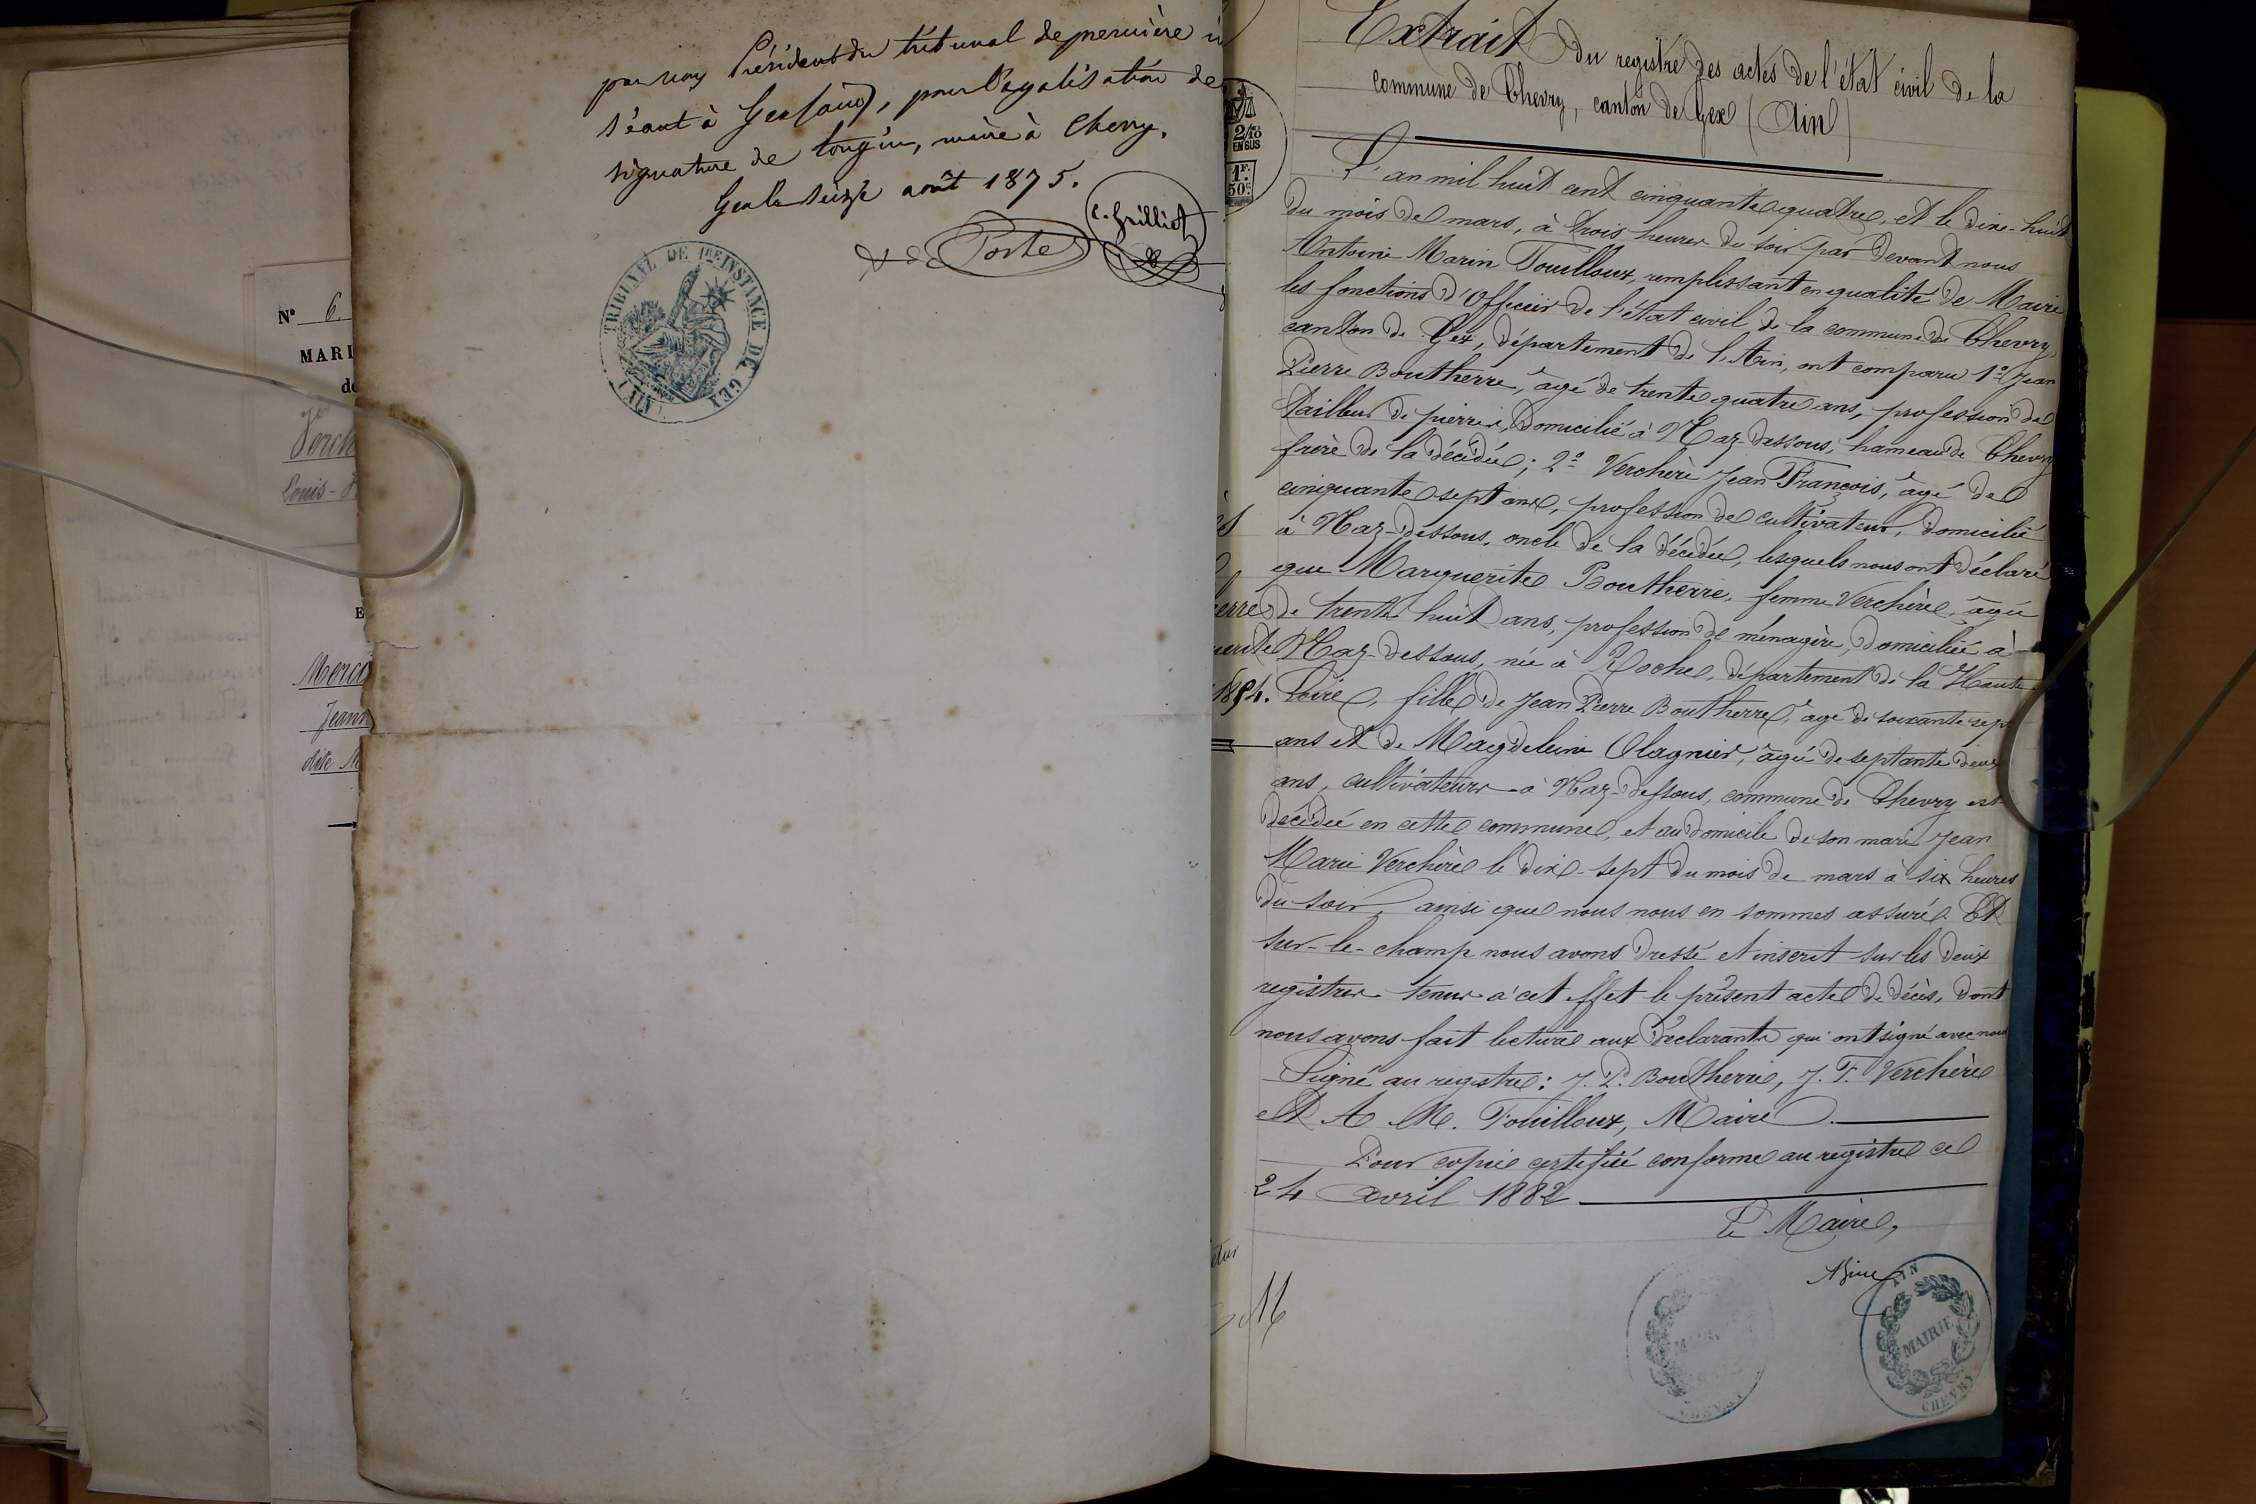 par nous Président du tribunal de première
séant à Gex (ain), pour légalisation de
signature de tongin, maire à Chevry.
Gex le seize août 1875.
Porte
C. Grilliet
TRIBUNAL DE 1RE INSTANCE DE GEX
(AIN)
N° 6.
MARI
de
Louis-
E
Merci
Jeann
dite M
2/10
EN SUS
1F.
50c.
Extrait du registre des actes de l'état civil de la
commune de Chevry, canton de Gex (Ain)
L'an mil huit cent cinquante quatre, et le dix-huit
du mois de mars, à trois heures du soir par devant nous
Antoine Marin Fouilloux, remplissant en qualité de Maire
les fonctions d'Officier de l'état civil de la commune de Chevry,
canton de Gex, département de l'Ain, ont comparu 1° Jean
Pierre Boutherre, âgé de trente quatre ans, profession de
tailleur de pierres, domicilié à Naz-dessous, hameau de Chevry
frère de la décédée; 2° Verchère Jean François, âgé de
cinquante sept ans, profession de cultivateur, domicilié
à Naz-dessous, oncle de la décédée, lesquels nous ont déclaré
que Marguerite Boutherre, femme Verchère, âgée
erre
de trente huit ans, profession de ménagère, domiciliée à
uerite
Naz-dessous, née à Roche, département de la Haute
1854.
Loire, fille de Jean Pierre Boutherre, âgé de soixante sept
ans et de Magdeleine Olagnier, âgée de septante deux
ans, cultivateurs à Naz-dessous, commune de Chevry est
décédée en cette commune, et au domicile de son mari Jean
Marie Verchère le dix-sept du mois de mars à six heures
du soir, ainsi que nous nous en sommes assuré. Et
sur-le-champ nous avons dressé et inscrit sur les deux
registres tenus à cet effet le présent acte de décès, dont
nous avons fait lecture aux déclarants qui ont signé avec nous
Signé au registre: J. P. Boutherre, J. F. Verchère
et A. M. Fouilloux, Maire.
Pour copie certifiée conforme au registre ce
24 avril 1882
Le Maire,
AIN
MAIRIE
CHEVRY